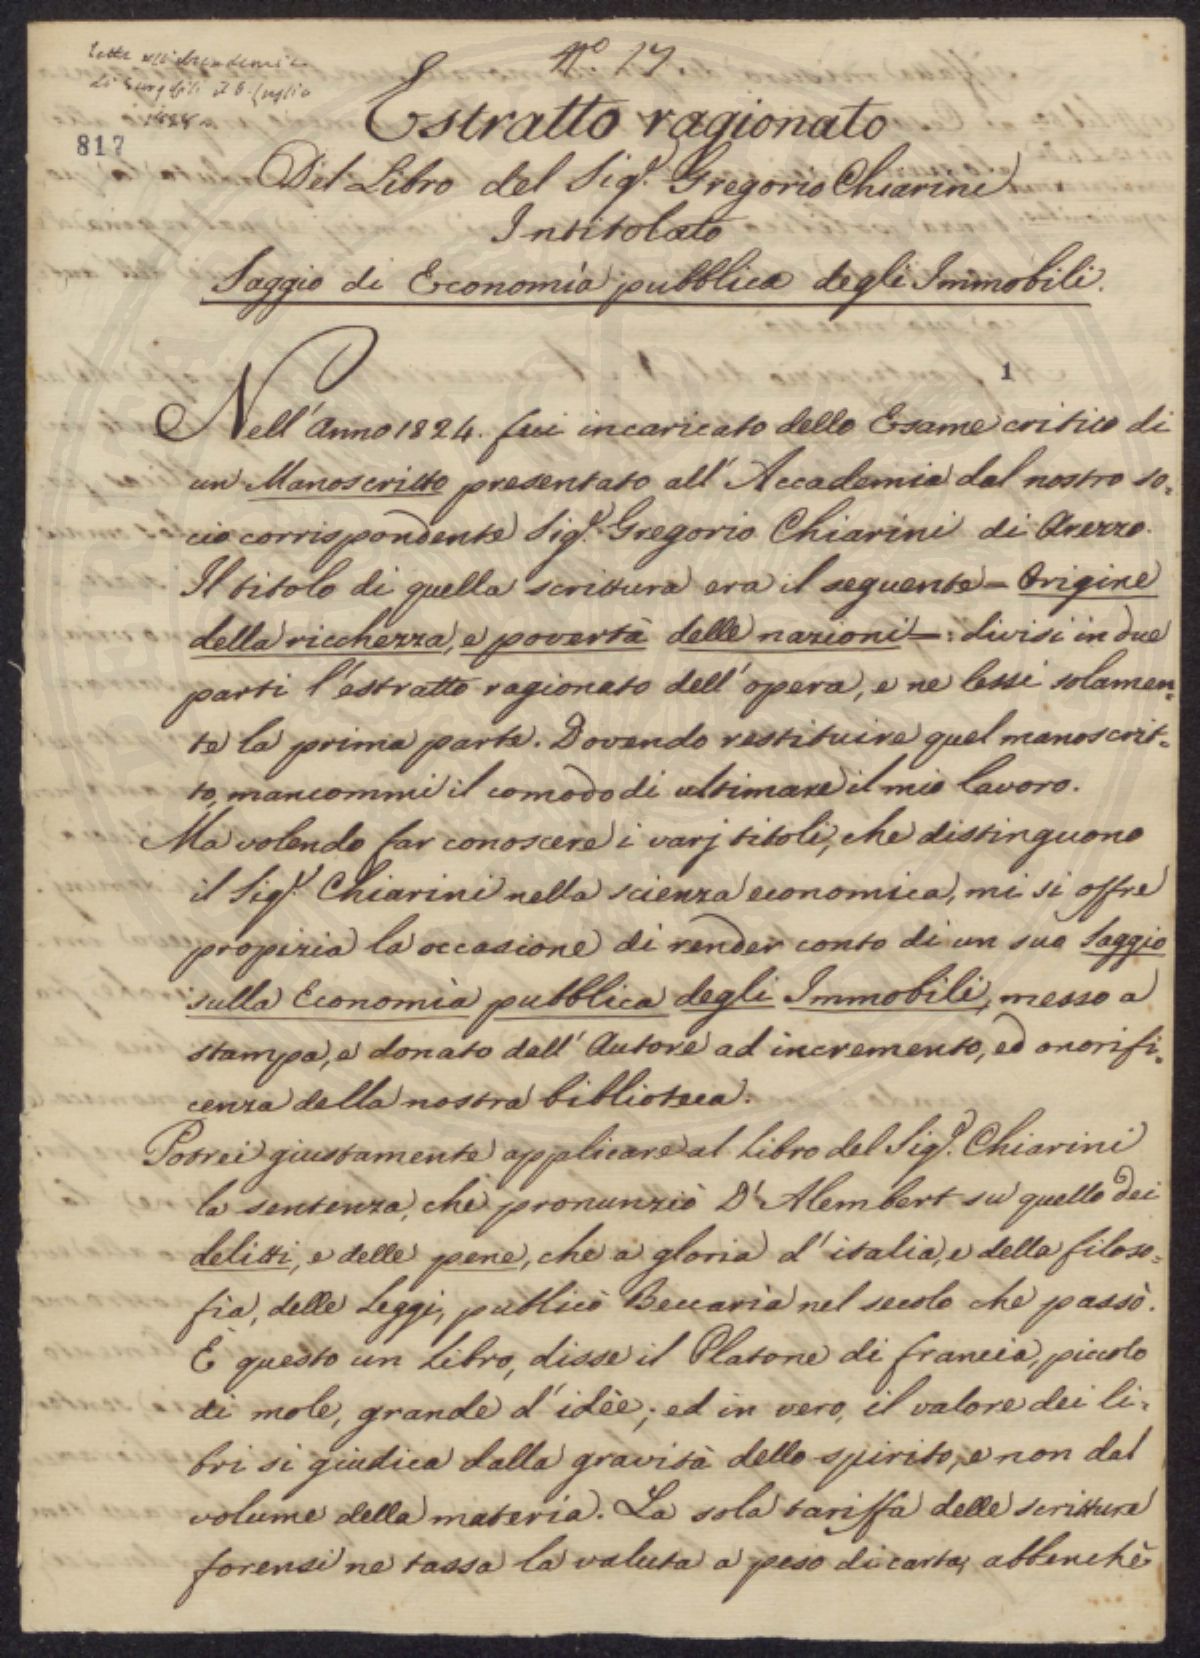 Letta all'Accademia
di Georgofili il 6. luglio
N.° 17.
817
Estratto ragionato
Del Libro del Sig.r Gregorio Chiarini
Intitolato
Saggio di Economia pubblica degli Immobili.
1
Nell'Anno 1824. fui incaricato dello Esame critico di
un Manoscritto presentato all'Accademia dal nostro so-
cio corrispondente Sig.r Gregorio Chiarini di Arezzo.
Il titolo di quella scrittura era il seguente = Origine
della ricchezza, e povertà delle nazioni =: divisi in due
parti l'estratto ragionato dell'opera, e ne lessi solamen-
te la prima parte. Dovendo restituire quel manoscrit-
to, mancommi il comodo di ultimare il mio lavoro.
Ma volendo far conoscere i varj titoli, che distinguono
il Sig.r Chiarini nella scienza economica, mi si offre
propizia la occasione di render conto di un suo Saggio
sulla Economia pubblica degli Immobili, messo a
stampa, e donato dall'Autore ad incremento, ed onorifi-
cenza della nostra biblioteca.
Potrei giustamente applicare al Libro del Sig.r Chiarini
la sentenza, che pronunziò D'Alembert su quello dei
delitti, e delle pene, che a gloria d'italia, e della filoso-
fia, delle Leggi, publicò Beccaria nel secolo che passò.
È questo un Libro, disse il Platone di francia, piccolo
di mole, grande d'idèe; ed in vero, il valore dei li-
bri si giudica dalla gravità dello spirito, e non dal
volume della materia. La sola tariffa delle scritture
forensi ne tassa la valuta a peso di carta, abbenchè